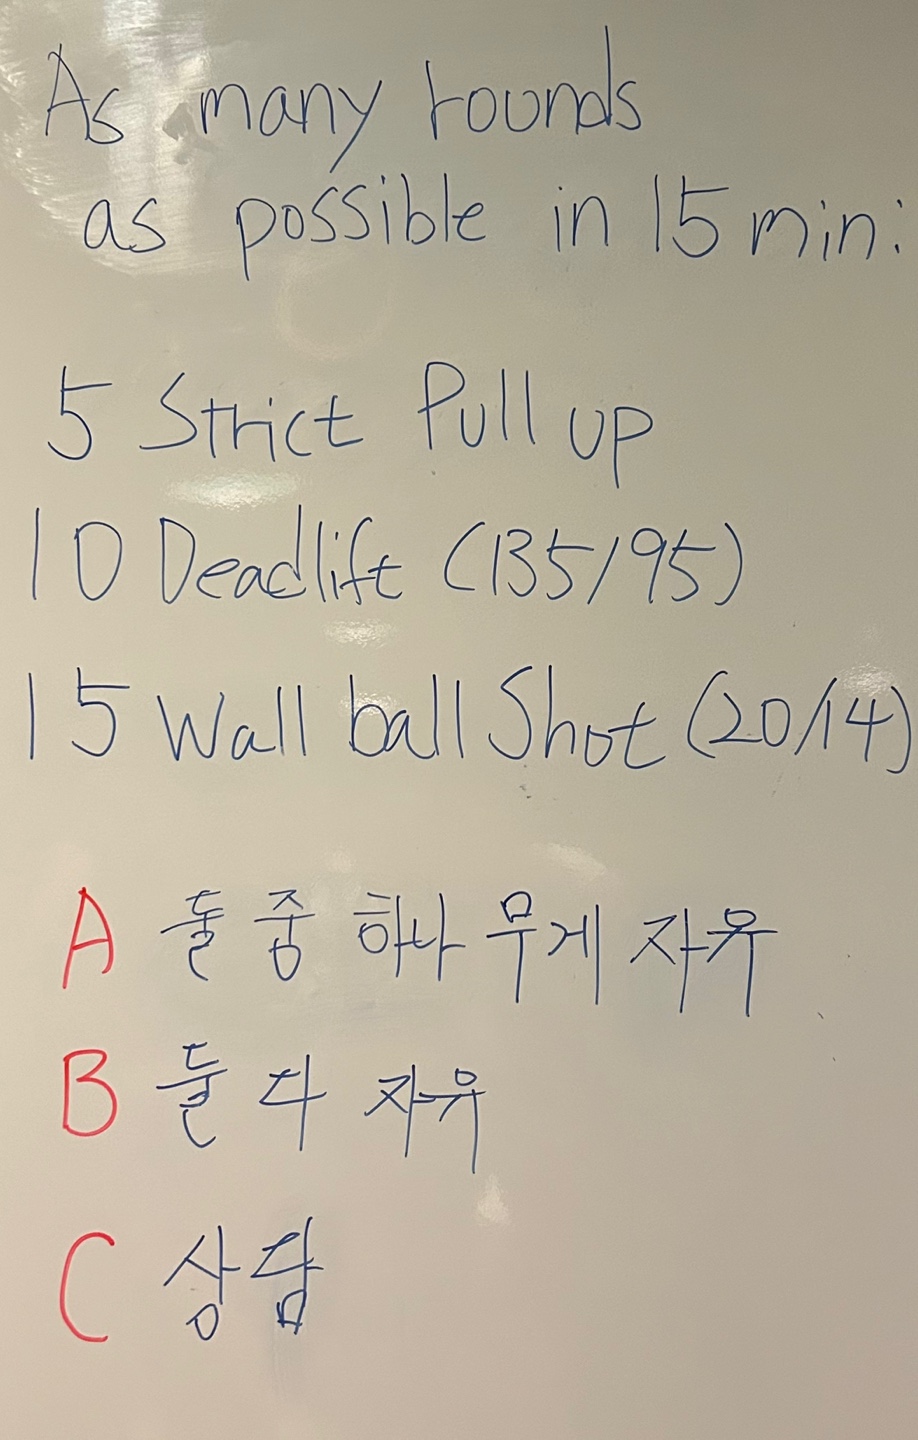 As many rounds
as possible in 15 min:
5 Strict Pull up
10 Deadlift (135/95)
15 Wall ball Shot (20/14)
A 둘 중 하나 무게 자유
B 둘 다 자유
C 상담